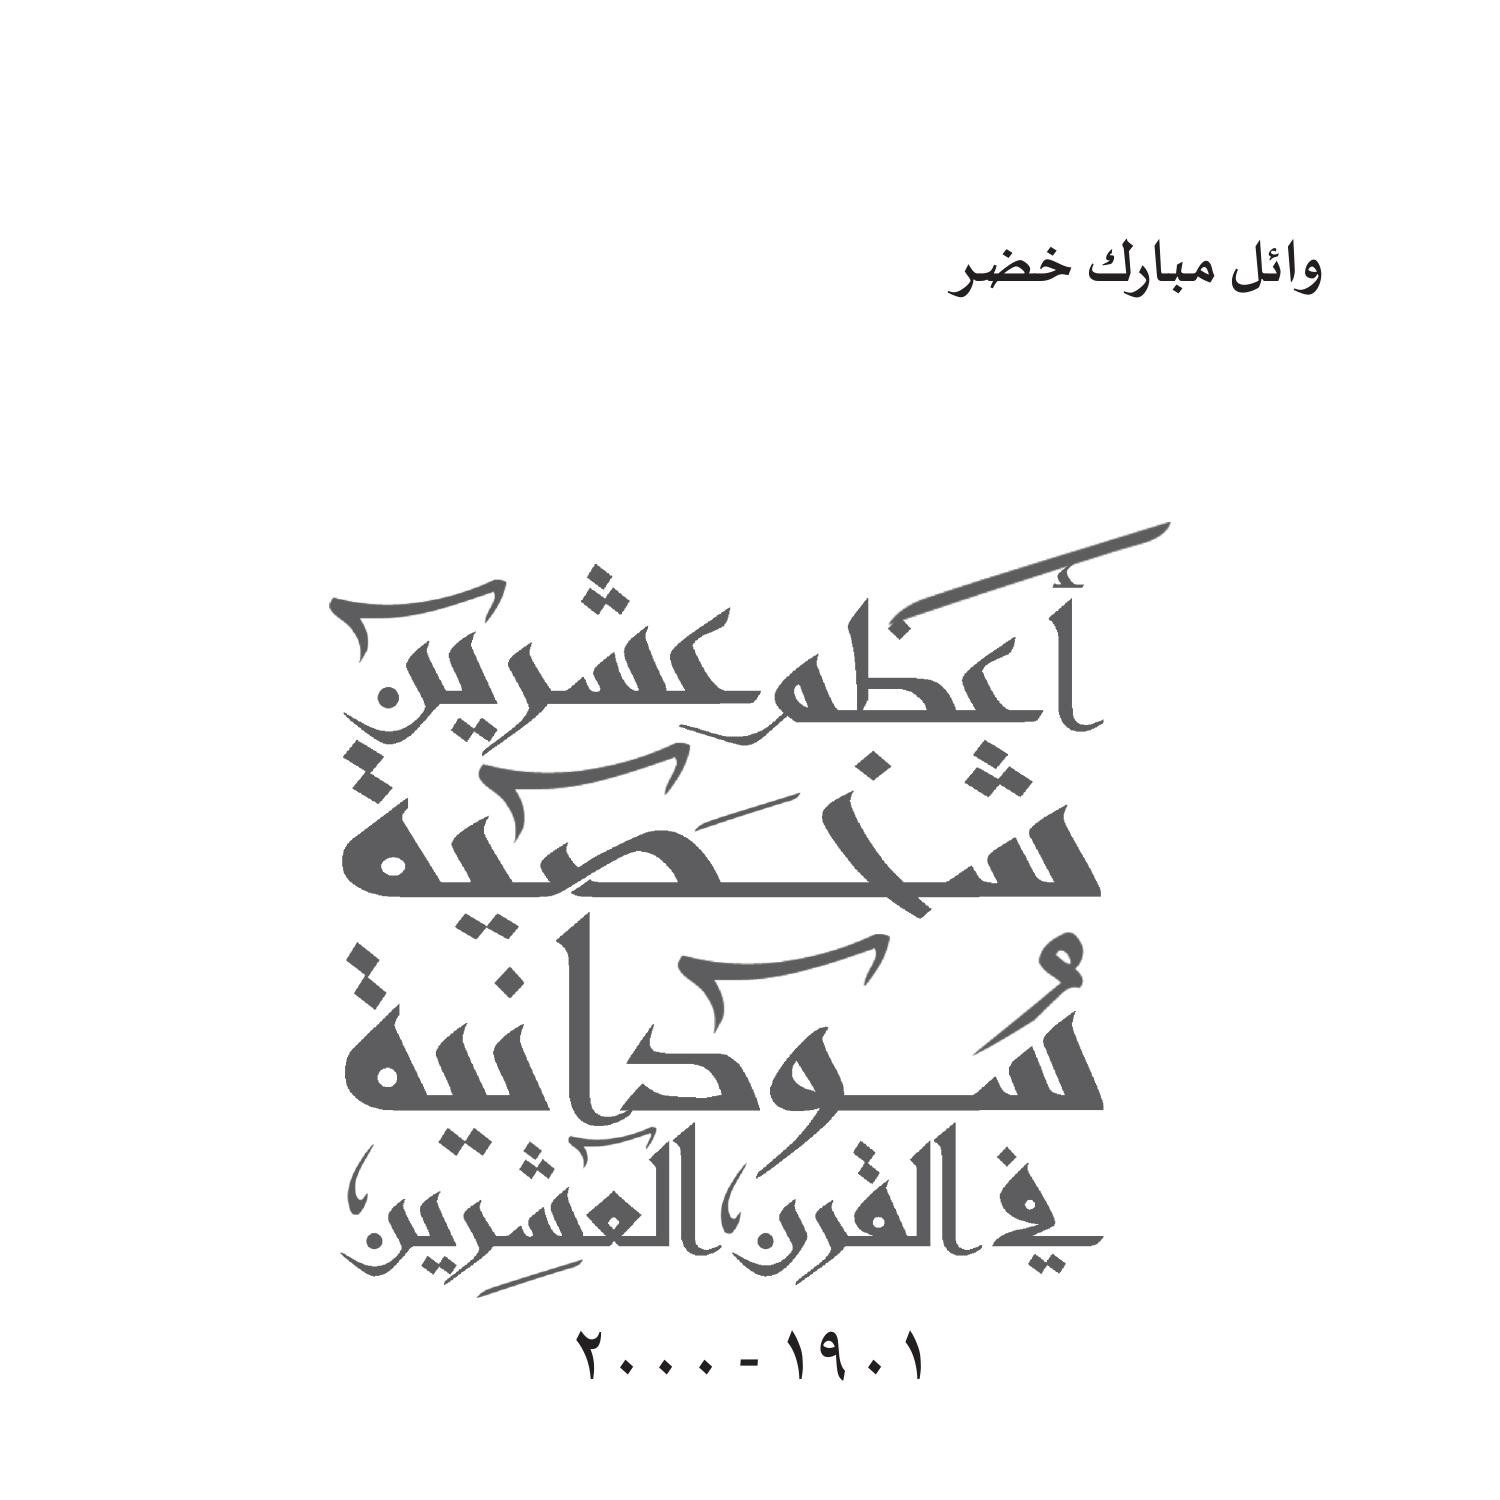 وائل مبارك خضر
أعظم عشرين
شخصية
سُودانية
في القرن العشرين
١٩٠١ - ٢٠٠٠